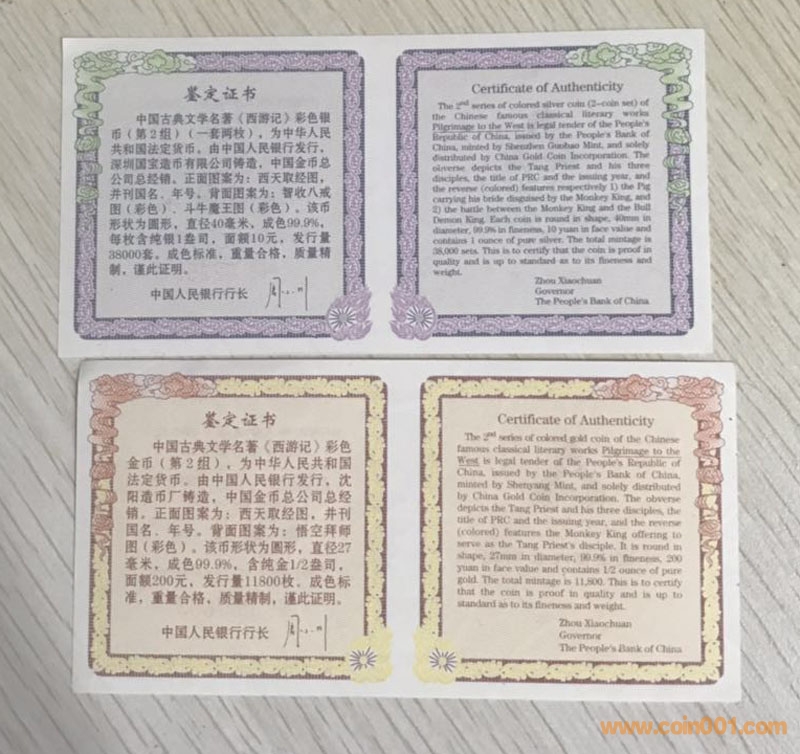 鉴定证书
中国古典文学名著《西游记》彩色银
币（第2组）（一套两枚），为中华人民
共和国法定货币。由中国人民银行发行，
深圳国宝造币有限公司铸造，中国金币总
公司总经销。正面图案为：西天取经图，
并刊国名、年号。背面图案为：智收八戒
图（彩色）、斗牛魔王图（彩色）。该币
形状为圆形，直径40毫米，成色99.9%，
每枚含纯银1盎司，面额10元，发行量
38000套。成色标准，重量合格，质量精
制，谨此证明。
中国人民银行行长
Certificate of Authenticity
The 2nd series of colored silver coin (2-coin set) of
the Chinese famous classical literary works
Pilgrimage to the West is legal tender of the People's
Republic of China, issued by the People's Bank of
China, minted by Shenzhen Guobao Mint, and solely
distributed by China Gold Coin Incorporation. The
obverse depicts the Tang Priest and his three
disciples, the title of PRC and the issuing year, and
the reverse (colored) features respectively 1) the Pig
carrying his bride disguised by the Monkey King, and
2) the battle between the Monkey King and the Bull
Demon King. Each coin is round in shape, 40mm in
diameter, 99.9% in fineness, 10 yuan in face value and
contains 1 ounce of pure silver. The total mintage is
38,000 sets. This is to certify that the coin is proof in
quality and is up to standard as to its fineness and
weight.
Zhou Xiaochuan
Governor
The People's Bank of China
鉴定证书
中国古典文学名著《西游记》彩色
金币（第2组），为中华人民共和国
法定货币。由中国人民银行发行，沈
阳造币厂铸造，中国金币总公司总经
销。正面图案为：西天取经图，并刊
国名、年号。背面图案为：悟空拜师
图（彩色）。该币形状为圆形，直径27
毫米，成色99.9%，含纯金1/2盎司，
面额200元，发行量11800枚。成色标
准，重量合格、质量精制，谨此证明。
中国人民银行行长
Certificate of Authenticity
The 2nd series of colored gold coin of the Chinese
famous classical literary works Pilgrimage to the
West is legal tender of the People's Republic of
China, issued by the People's Bank of China,
minted by Shenyang Mint, and solely distributed
by China Gold Coin Incorporation. The obverse
depicts the Tang Priest and his three disciples, the
title of PRC and the issuing year, and the reverse
(colored) features the Monkey King offering to
serve as the Tang Priest's disciple. It is round in
shape, 27mm in diameter, 99.9% in fineness, 200
yuan in face value and contains 1/2 ounce of pure
gold. The total mintage is 11,800. This is to certify
that the coin is proof in quality and is up to
standard as to its fineness and weight.
Zhou Xiaochuan
Governor
The People's Bank of China
www.coin001.com